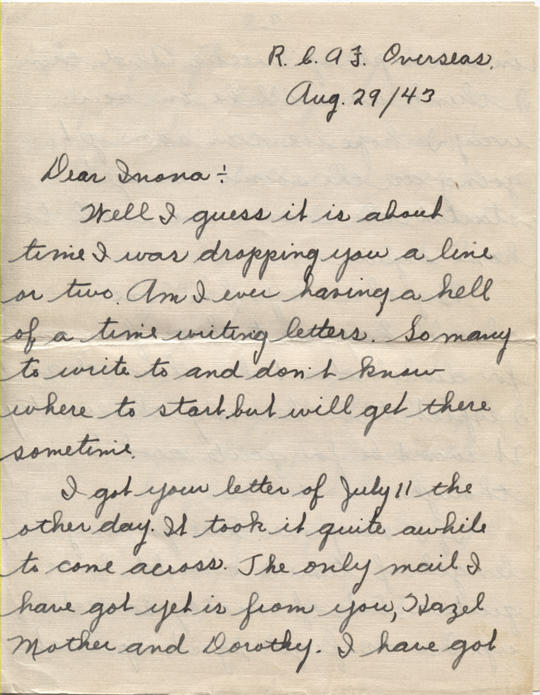 R. C. A F. Overseas.
Aug. 29/43
Dear Inona :
Well I guess it is about
time I was dropping you a line
or two. Am I ever having a hell
of a time writing letters. So many
to write to and don't know
where to start but will get there
sometime.
I got your letter of July 11 the
other day. It took it quite awhile
to come across. The only mail I
have got yet is from you, Hazel
Mother and Dorothy. I have got